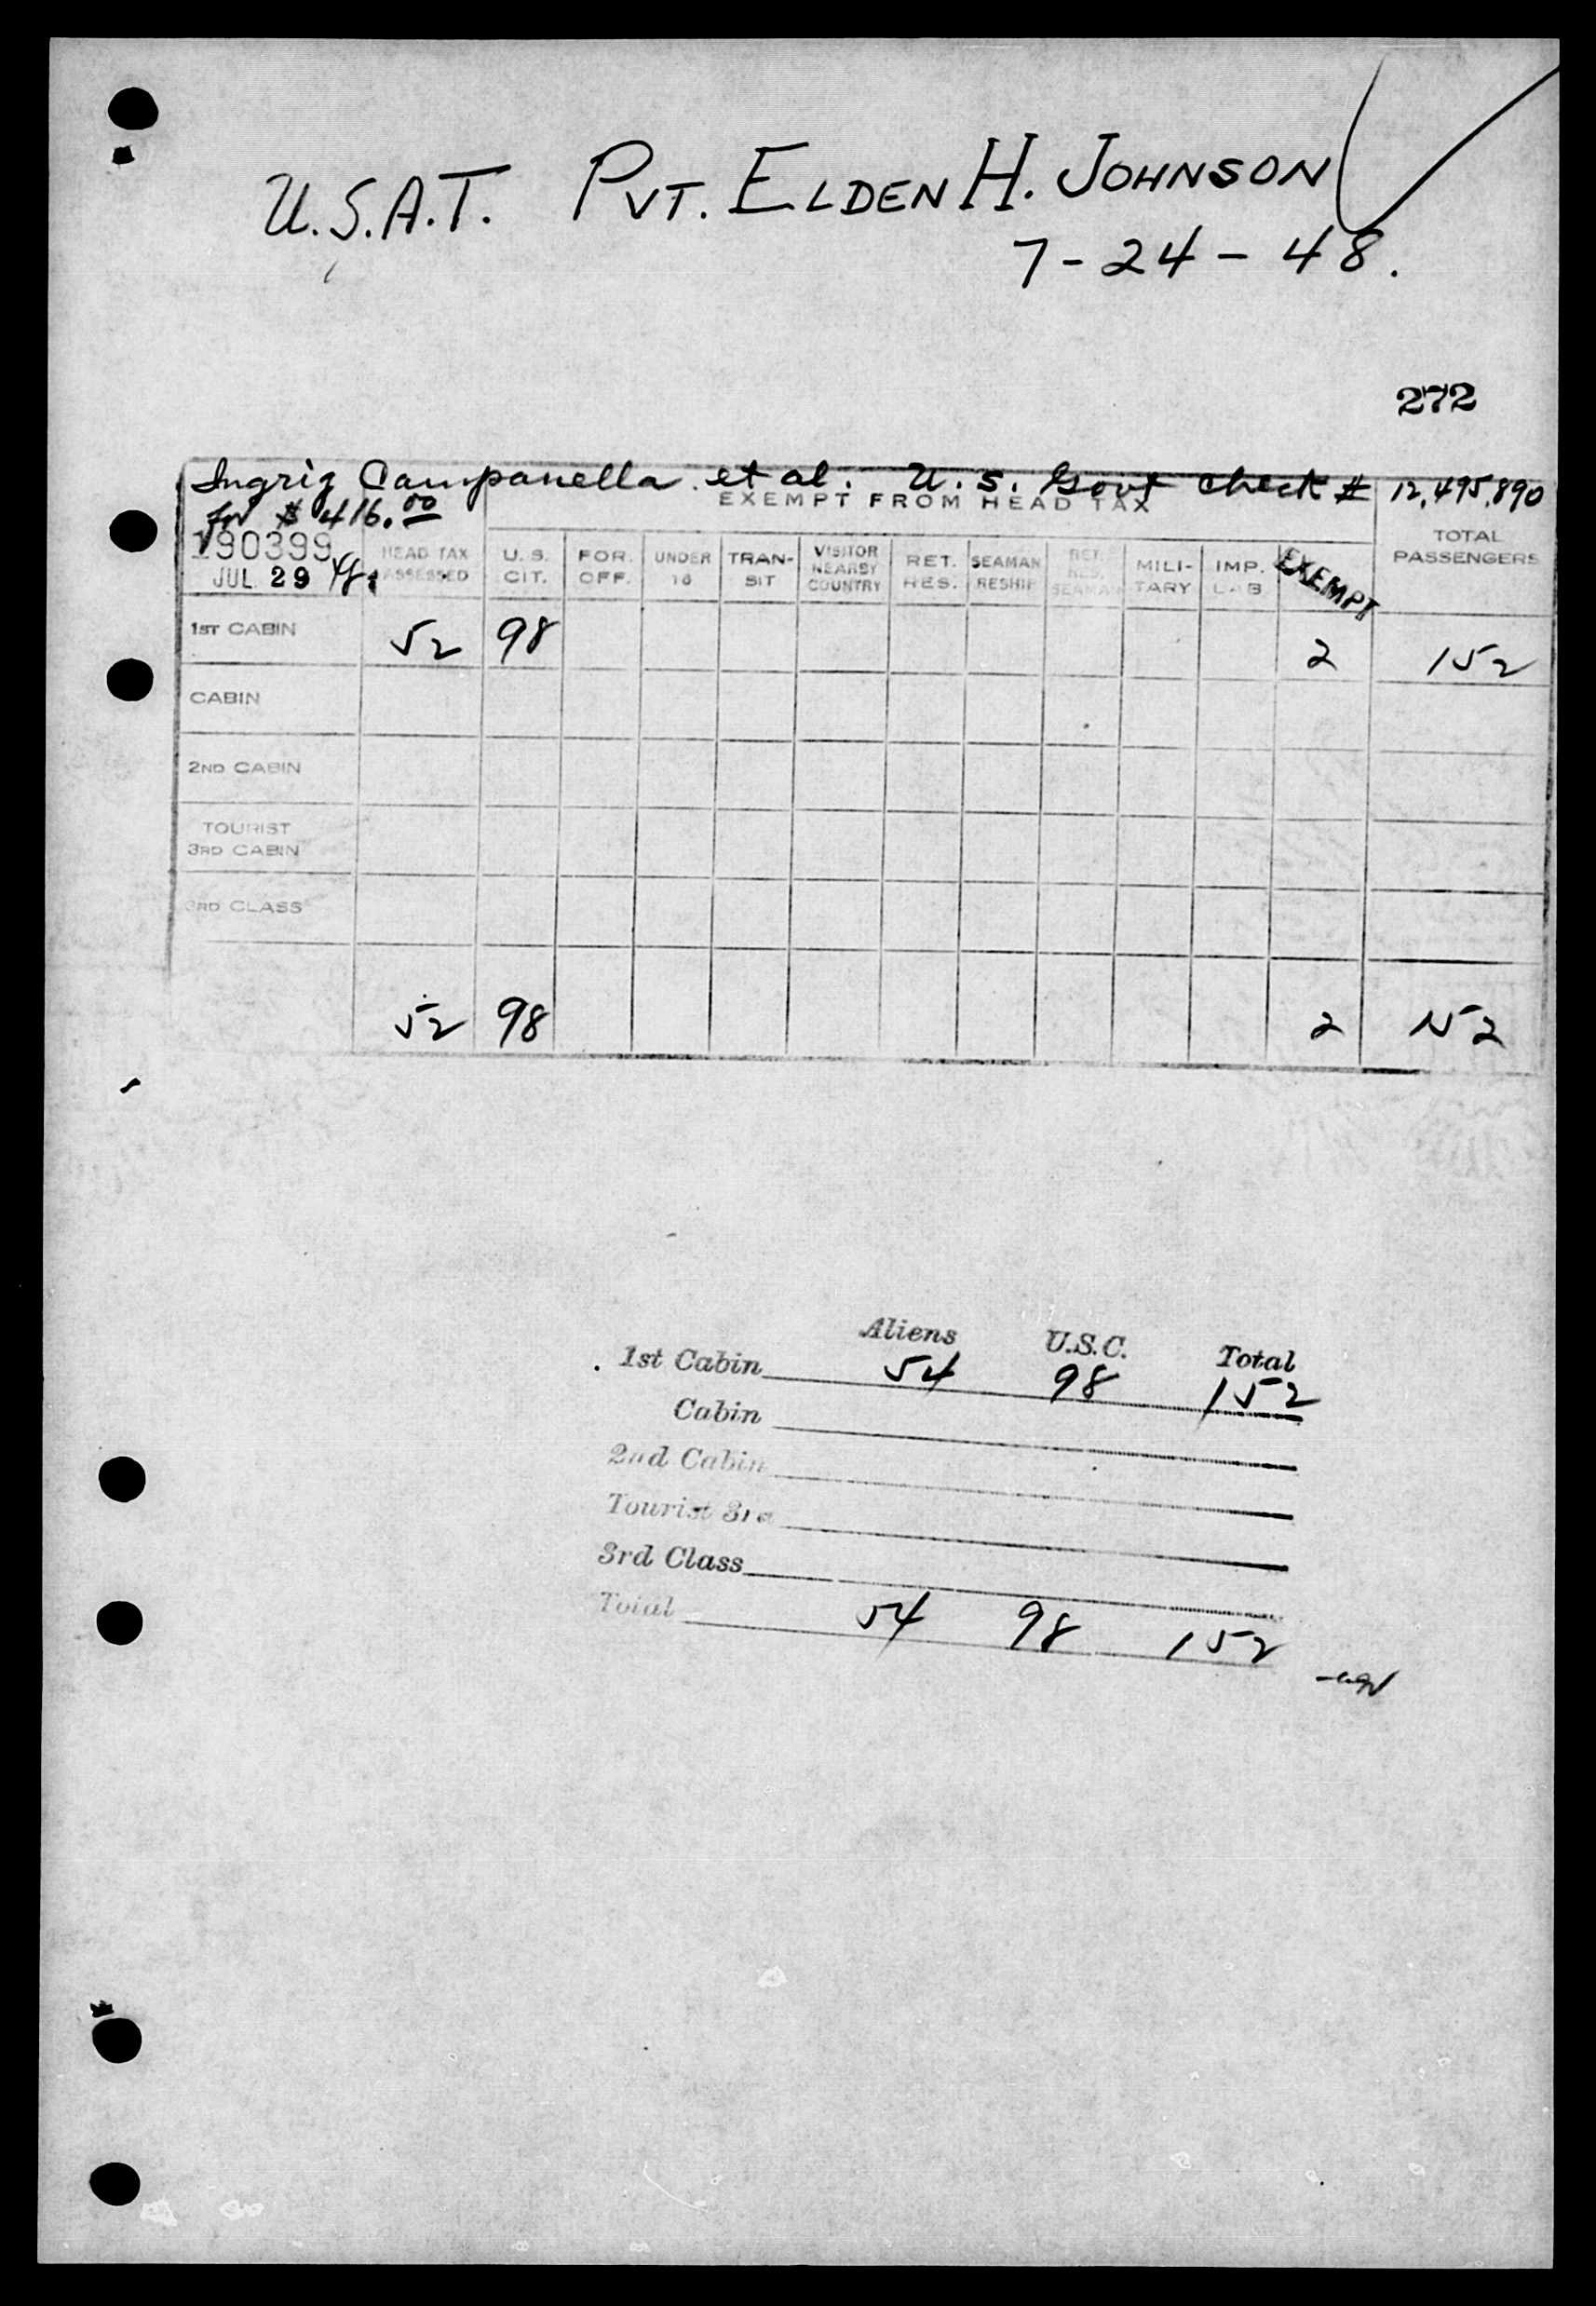 U.S.A.T. PVT. ELDEN H. JOHNSON
7-24-48.
272
Ingrig Campanella et al. U.S. Govt check # 12,495,890
for $416.00
EXEMPT FROM HEAD TAX
190399
JUL 29 48
HEAD TAX ASSESSED U.S. CIT. FOR. OFF. UNDER 16 TRAN-SIT VISITOR NEARBY COUNTRY RET. RES. SEAMAN RESHIP RET. RES. SEAMAN MILI-TARY IMP. LAB EXEMPT TOTAL PASSENGERS
1ST CABIN 52 98 2 152
CABIN
2ND CABIN
TOURIST
3RD CABIN
3RD CLASS
52 98 2 152
Aliens U.S.C. Total
1st Cabin 54 98 152
Cabin
2nd Cabin
Tourist 3rd
3rd Class
Total 54 98 152